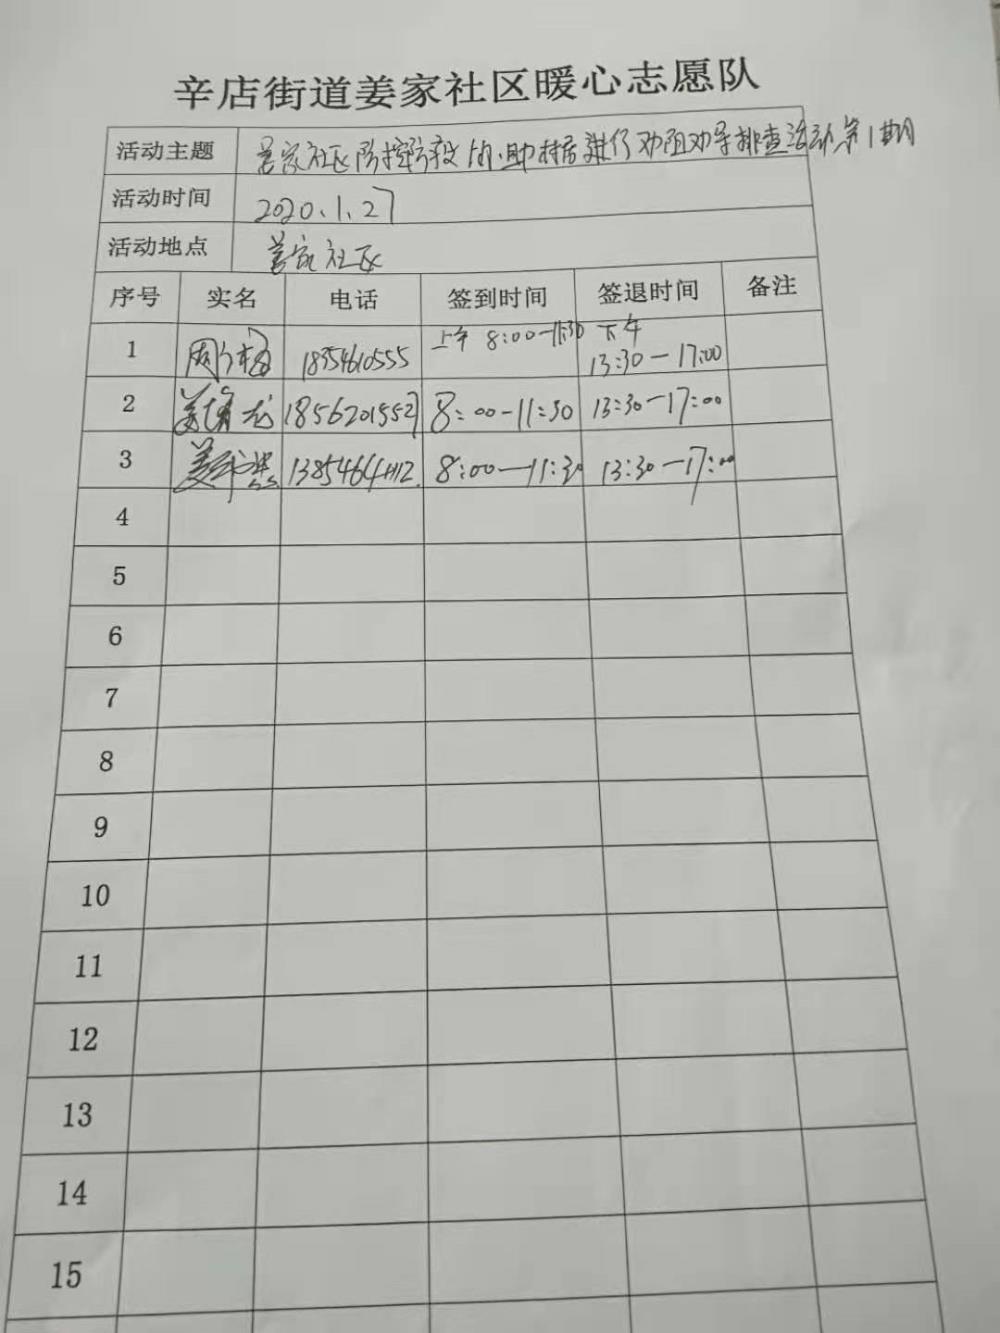 辛店街道姜家社区暖心志愿队
活动主题 姜家社区防控防疫 协助村居进行劝阻劝导排查活动第1期
活动时间 2020.1.27
活动地点 姜家社区
序号 实名 电话 签到时间 签退时间 备注
1 18354610555 上午 8:00-11:30 下午 13:30-17:00
2 18562015527 8:00-11:30 13:30-17:00
3 8:00-11:30 13:30-17:00
4
5
6
7
8
9
10
11
12
13
14
15